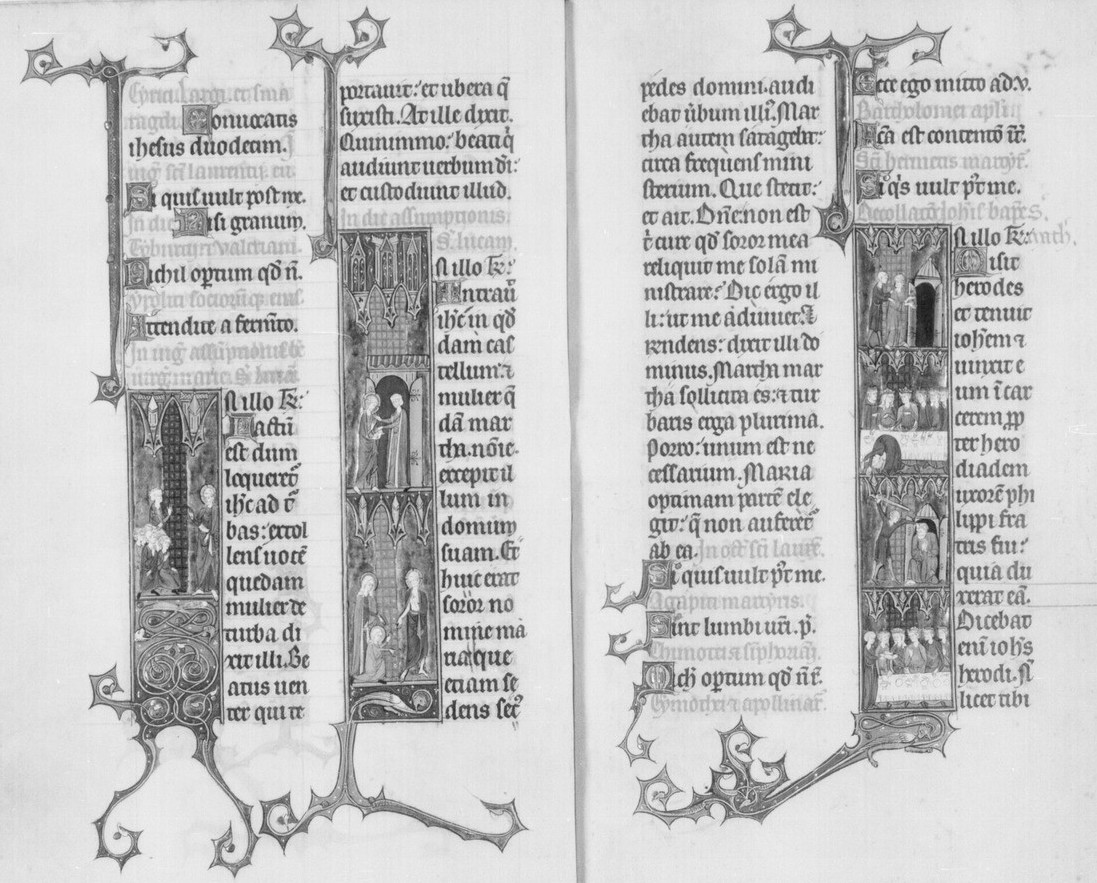 Cyrici largi. et sma
ragdi.
Conuocatis
ihesus duodecim.
in uig' sci laurentij. eu.
Si quis uult post me.
In die Nisi granum.
Tyburcij et valeriani.
Nichil optum qd n̄.
yppoliti sociorūq; eius.
Attendite a fermēto.
In uig' assūptionis be
uirg' marie. S. lucam
In illo t̄r:
Factū
est dum
loqueret̄
ih̄c ad t̄
bas: extol
lens uocē
quedam
mulier de
turba di
xit illi. Be
atus uen
ter qui te
portauit: et ubera q̄
suxisti. At ille dixit.
Quinimmo: beati q̄
audiunt uerbum dī:
et custodiunt illud.
In die assumptionis.
S. lucam.
In illo t̄r:
Intrauit
ih̄c in qd̄
dam cas
tellum: ⁊
mulier q̄
dā mar
tha. nōīe.
excepit il
lum in
domum
suam. Et
huic erat
soror no
mine ma
ria: que
etiam se
dens sec̄
pedes domini. audi
ebat ūbum illi'. Mar
tha autem satagebat:
circa frequens mini
sterium. Que stetit:
et ait. Dn̄e. non est
t̄ cure qd̄ soror mea
reliquit me solā mi
nistrare: Dic ergo il
li: ut me adiuuet. ⁊
Rndens: dixit illi do
minus. Martha mar
tha sollicita es: ⁊ tur
baris erga plurima.
Porro: unum est ne
cessarium. Maria
optimam partē ele
git: q̄ non auferet̄
ab ea. In oct' sci laurē.
Si quis uult p̄t me.
Agapiti martyris.
Sint lumbi ur̄i. p̄.
Thimotei ⁊ simphoriani.
Nich optum qd̄ n̄ r̄.
Tymothei ⁊ apollinar'.
Ecce ego mitto ad. v.
Bartholomei apsti
Fca est contentō īr̄.
Sci hermetis martyr'.
Si q's uult p̄t me.
Decollatō ioh̄is bap̄te S.
In illo t̄r: march.
Misit
herodes
et tenuit
ioh̄em ⁊
uinxit e
um ī car
cerem p̄p
ter hero
diadem
uxorē phi
lippi fra
tris sui:
quia du
xerat eā.
Dicebat
enī ioh̄s
herodi. Nō
licet tibi